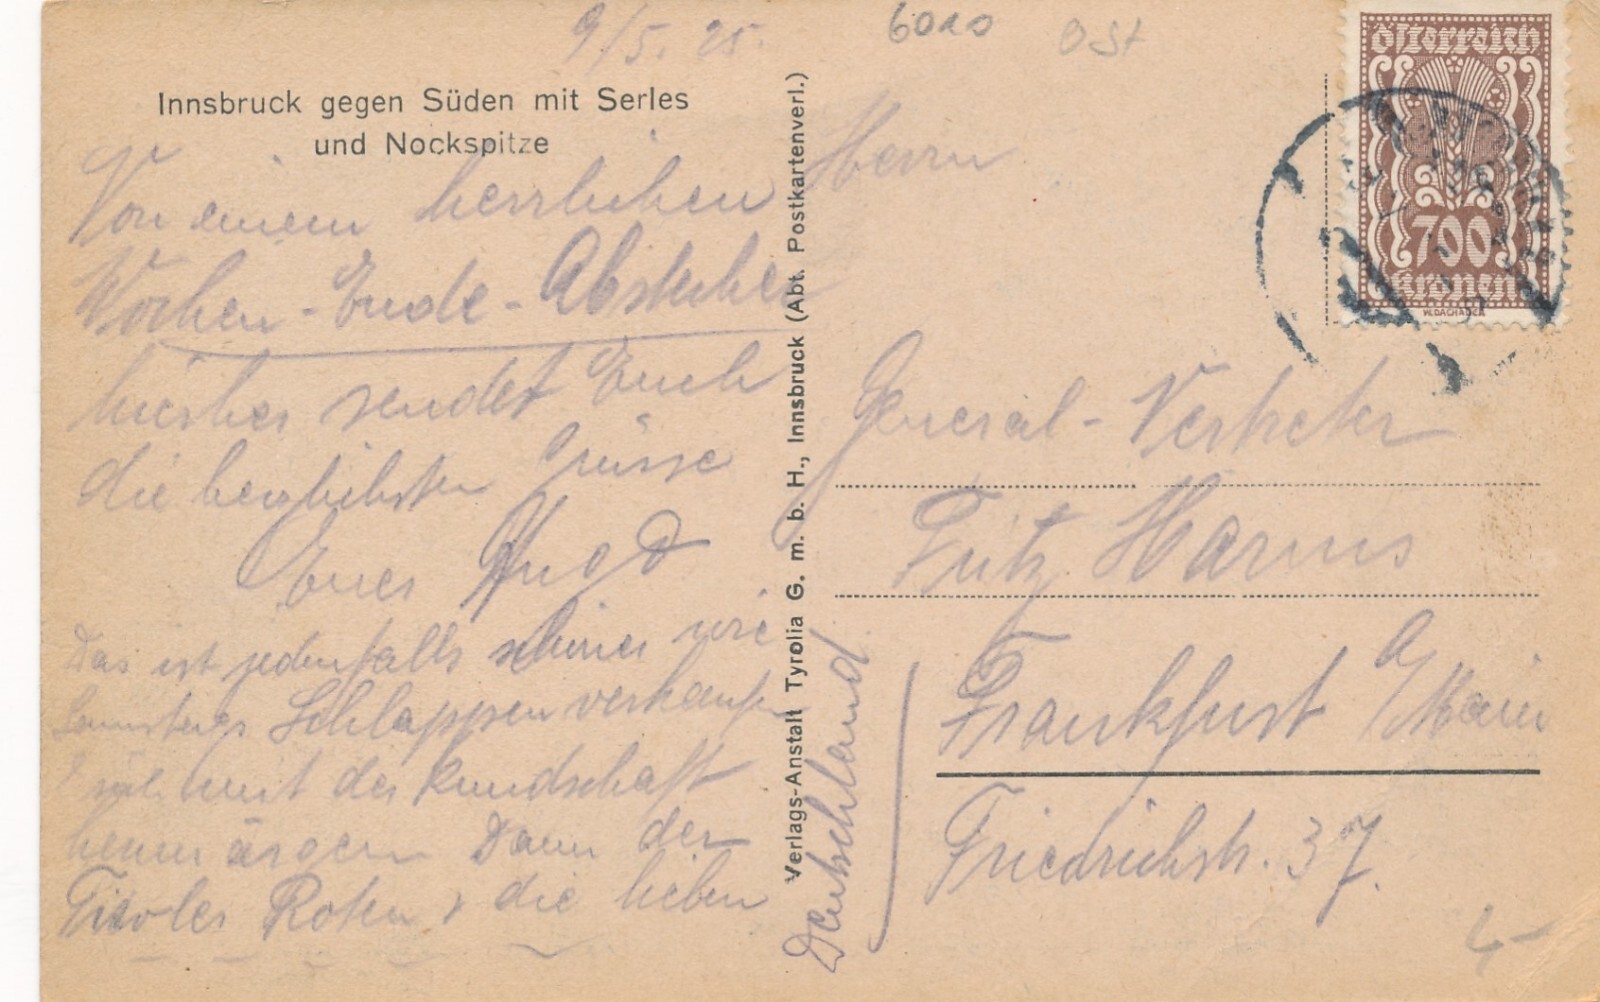 9/5. 25.
6020 Öst
Innsbruck gegen Süden mit Serles
und Nockspitze
Von einem herrlichen
Wochen-Ende-Abstecher
hierher sendet Euch
die herzlichsten Grüsse
Euer Hugo
Das ist jedenfalls schöner wie
Samstags Schlappen verkaufen
mit der Kundschaft
herum ärgern Dann der
Tiroler Roten & die lieben
Verlags-Anstalt Tyrolia G. m. b. H., Innsbruck (Abt. Postkartenverl.)
Österreich
700
Kronen
W.DACHAUER
Herrn
General-Vertreter
Fritz Harms
Frankfurt a/Main
Friedrichstr. 37.
Deutschland
4-